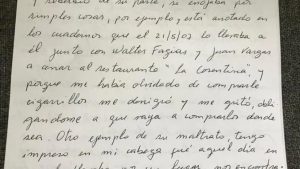 y soberbio de su parte, se enojaba por
simples cosas, por ejemplo, está anotado en
los cuadernos que el 21/5/07 lo llevaba a
él junto con Walter Fagias y Juan Vargas
a cenar al restaurante "La Corentina" y
porque me había olvidado de comprarle
cigarrillos me denigró y me gritó, obli-
gandome a que vaya a comprarlos donde
sea. Otro ejemplo de su maltrato, tengo
impreso en mi cabeza que aquel día en